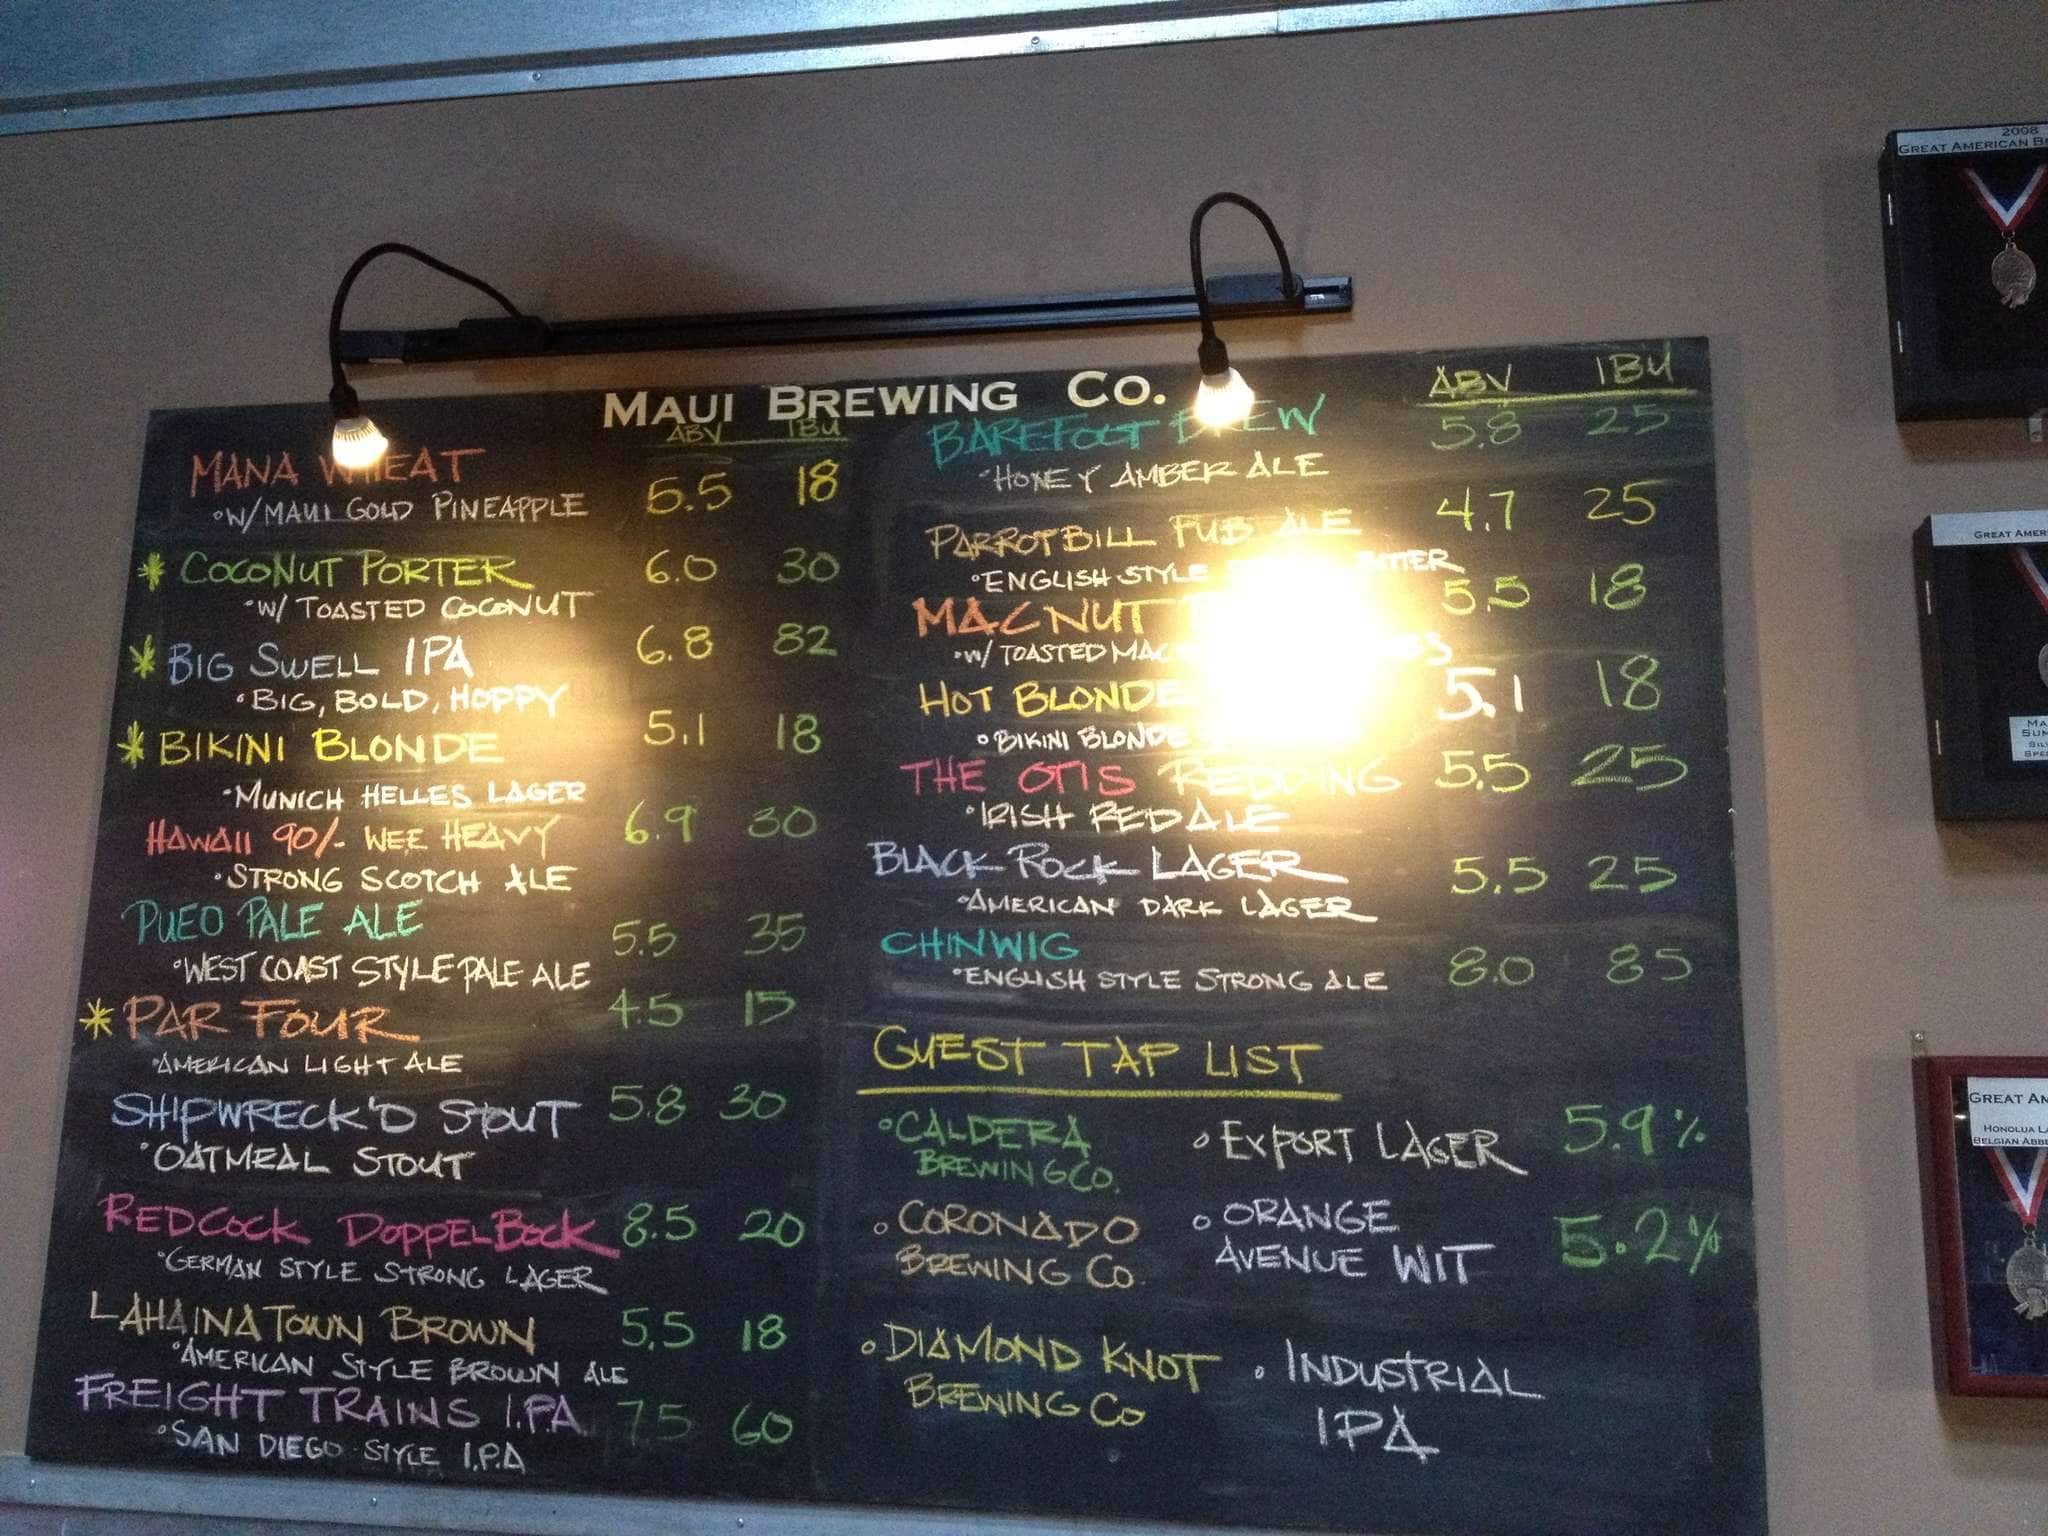 MAUI BREWING CO.
ABV IBU
MANA WHEAT 5.5 18
W/ MAUI GOLD PINEAPPLE
* COCONUT PORTER 6.0 30
W/ TOASTED COCONUT
* BIG SWELL IPA 6.8 82
BIG, BOLD, HOPPY
* BIKINI BLONDE 5.1 18
MUNICH HELLES LAGER
HAWAII 90/- WEE HEAVY 6.9 30
STRONG SCOTCH ALE
PUEO PALE ALE 5.5 35
WEST COAST STYLE PALE ALE
* PAR FOUR 4.5 15
AMERICAN LIGHT ALE
SHIPWRECK'D STOUT 5.8 30
OATMEAL STOUT
REDCOCK DOPPELBOCK 8.5 20
GERMAN STYLE STRONG LAGER
LAHAINATOWN BROWN 5.5 18
AMERICAN STYLE BROWN ALE
FREIGHT TRAINS I.P.A 7.5 60
SAN DIEGO STYLE I.P.A
ABV IBU
BAREFOOT BREW 5.8 25
HONEY AMBER ALE
PARROTBILL PUB ALE 4.7 25
ENGLISH STYLE BITTER
MACNUT 5.5 18
W/ TOASTED
HOT BLONDE 5.1 18
BIKINI BLONDE
THE OTIS REDDING 5.5 25
IRISH RED ALE
BLACK ROCK LAGER 5.5 25
AMERICAN DARK LAGER
CHINWIG 8.0 85
ENGLISH STYLE STRONG ALE
GUEST TAP LIST
CALDERA BREWING CO. EXPORT LAGER 5.9%
CORONADO BREWING CO. ORANGE AVENUE WIT 5.2%
DIAMOND KNOT BREWING CO INDUSTRIAL IPA
2008
GREAT AMERICAN
GREAT
GREAT
HONOLUA
BELGIAN